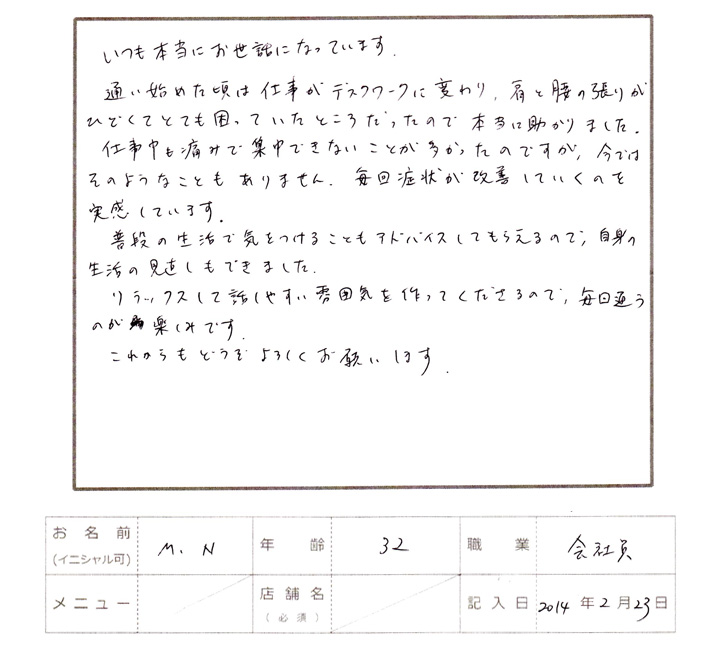 いつも本当にお世話になっています.
通い始めた頃は仕事がデスクワークに変わり, 肩と腰の張りが
ひどくてとても困っていたところだったので本当に助かりました.
仕事中も痛みで集中できないことが多かったのですが, 今では
そのようなこともありません. 毎回症状が改善していくのを
実感しています.
普段の生活で気をつけることもアドバイスしてもらえるので, 自身の
生活の見直しもできました.
リラックスして話しやすい雰囲気を作ってくださるので, 毎回通う
のが楽しみです.
これからもどうぞよろしくお願いします.
お名前 (イニシャル可) M. N 年齢 32 職業 会社員
メニュー 店舗名 (必須) 記入日 2014年2月23日